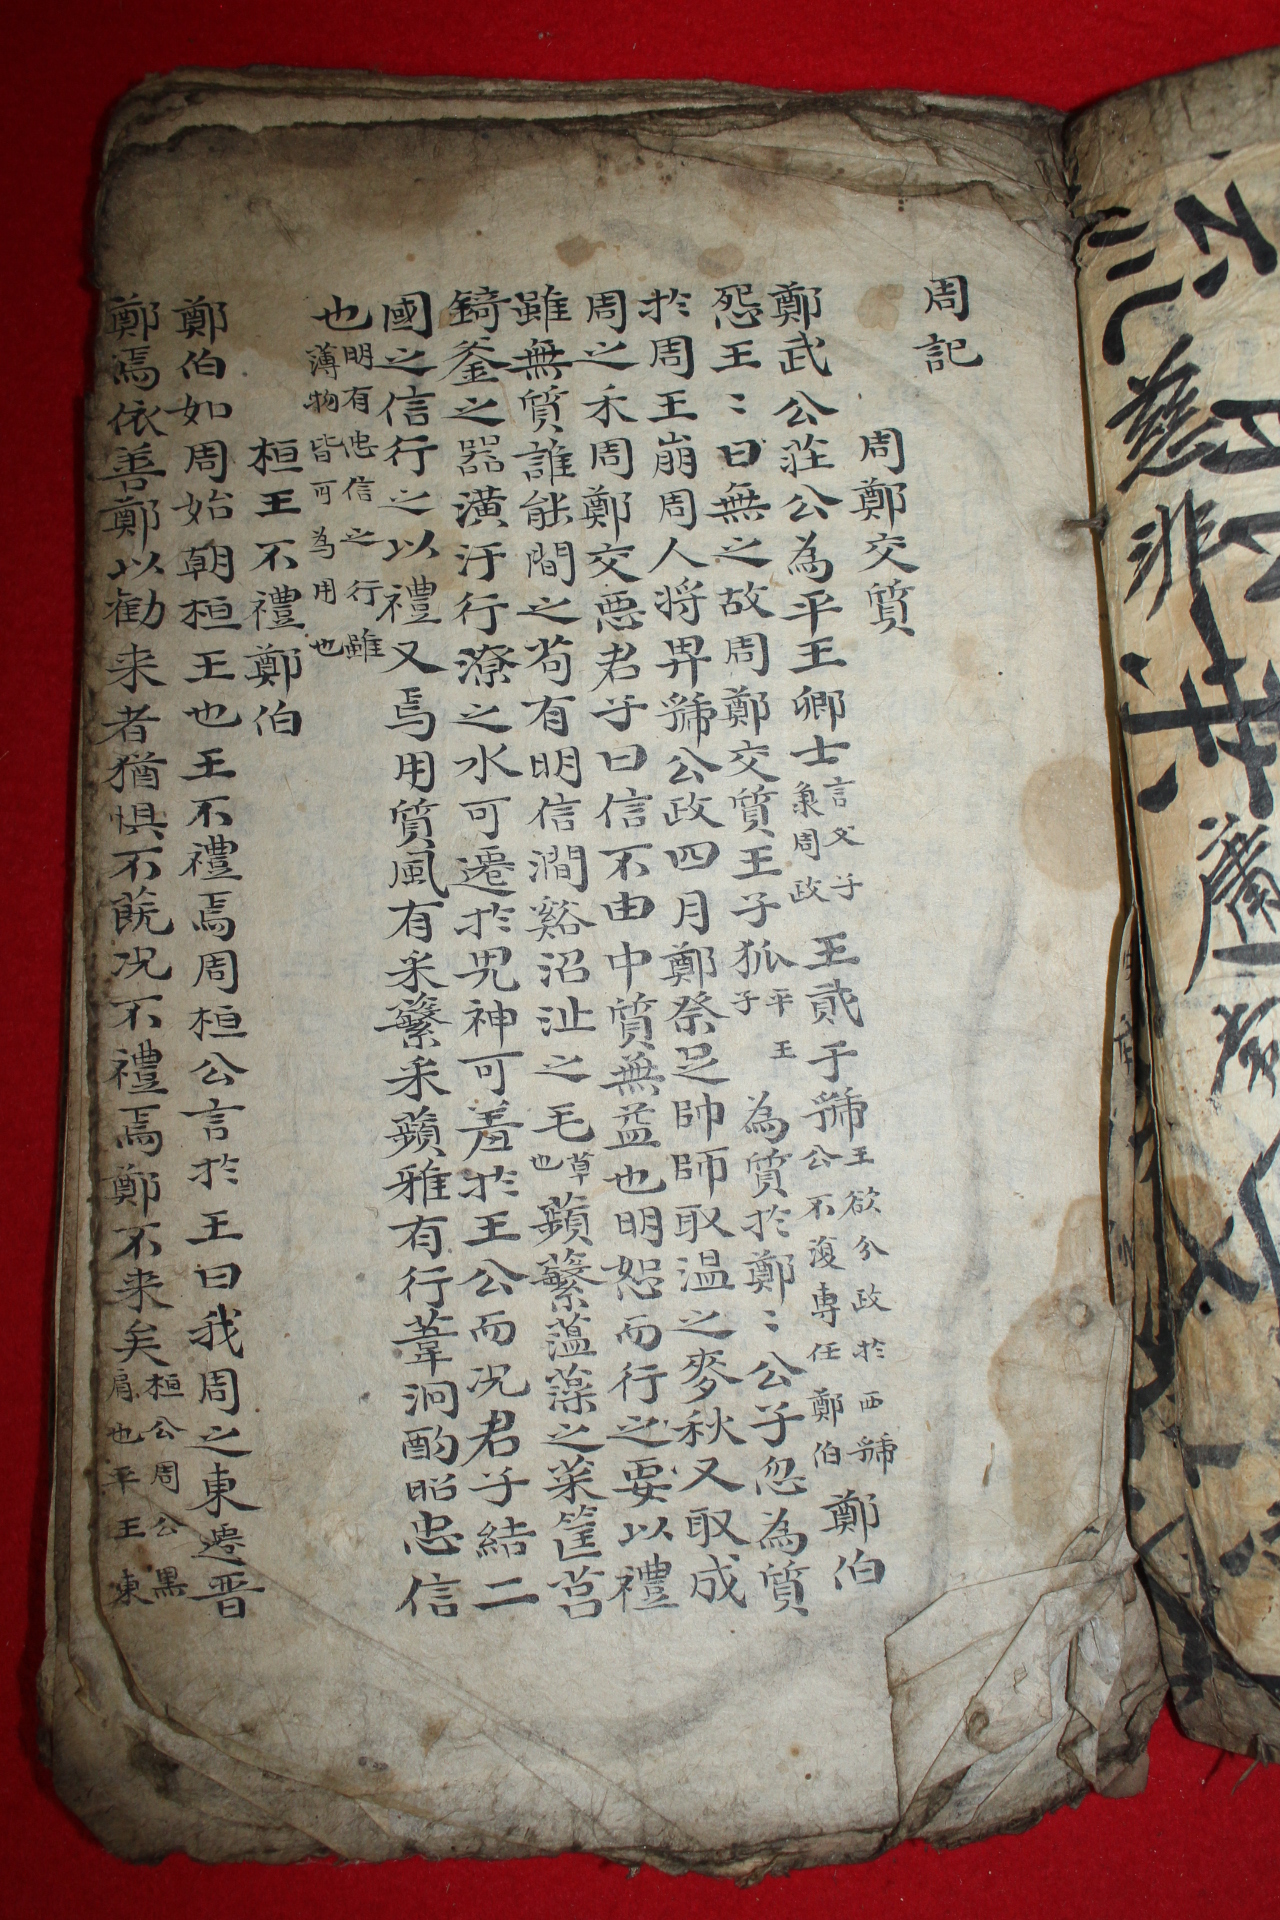 周記
周鄭交質
鄭武公莊公為平王卿士言父子秉周政王貳于虢王欲分政於西虢公不復專任鄭伯鄭伯
怨王〻曰無之故周鄭交質王子狐平王子為質於鄭〻公子忽為質
於周王崩周人將畀虢公政四月鄭祭足帥師取温之麥秋又取成
周之禾周鄭交惡君子曰信不由中質無益也明恕而行之要以禮
雖無質誰能間之茍有明信澗谿沼沚之毛草也蘋蘩薀藻之菜筐筥
錡釜之器潢汙行潦之水可遷於鬼神可羞於王公而况君子結二
國之信行之以禮又焉用質風有采蘩采蘋雅有行葦泂酌昭忠信
也明有忠信之行雖薄物皆可為用也
桓王不禮鄭伯
鄭伯如周始朝桓王也王不禮焉周桓公言於王曰我周之東遷晋
鄭焉依善鄭以勸来者猶惧不蔇况不禮焉鄭不来矣桓公周公黑肩也平王東